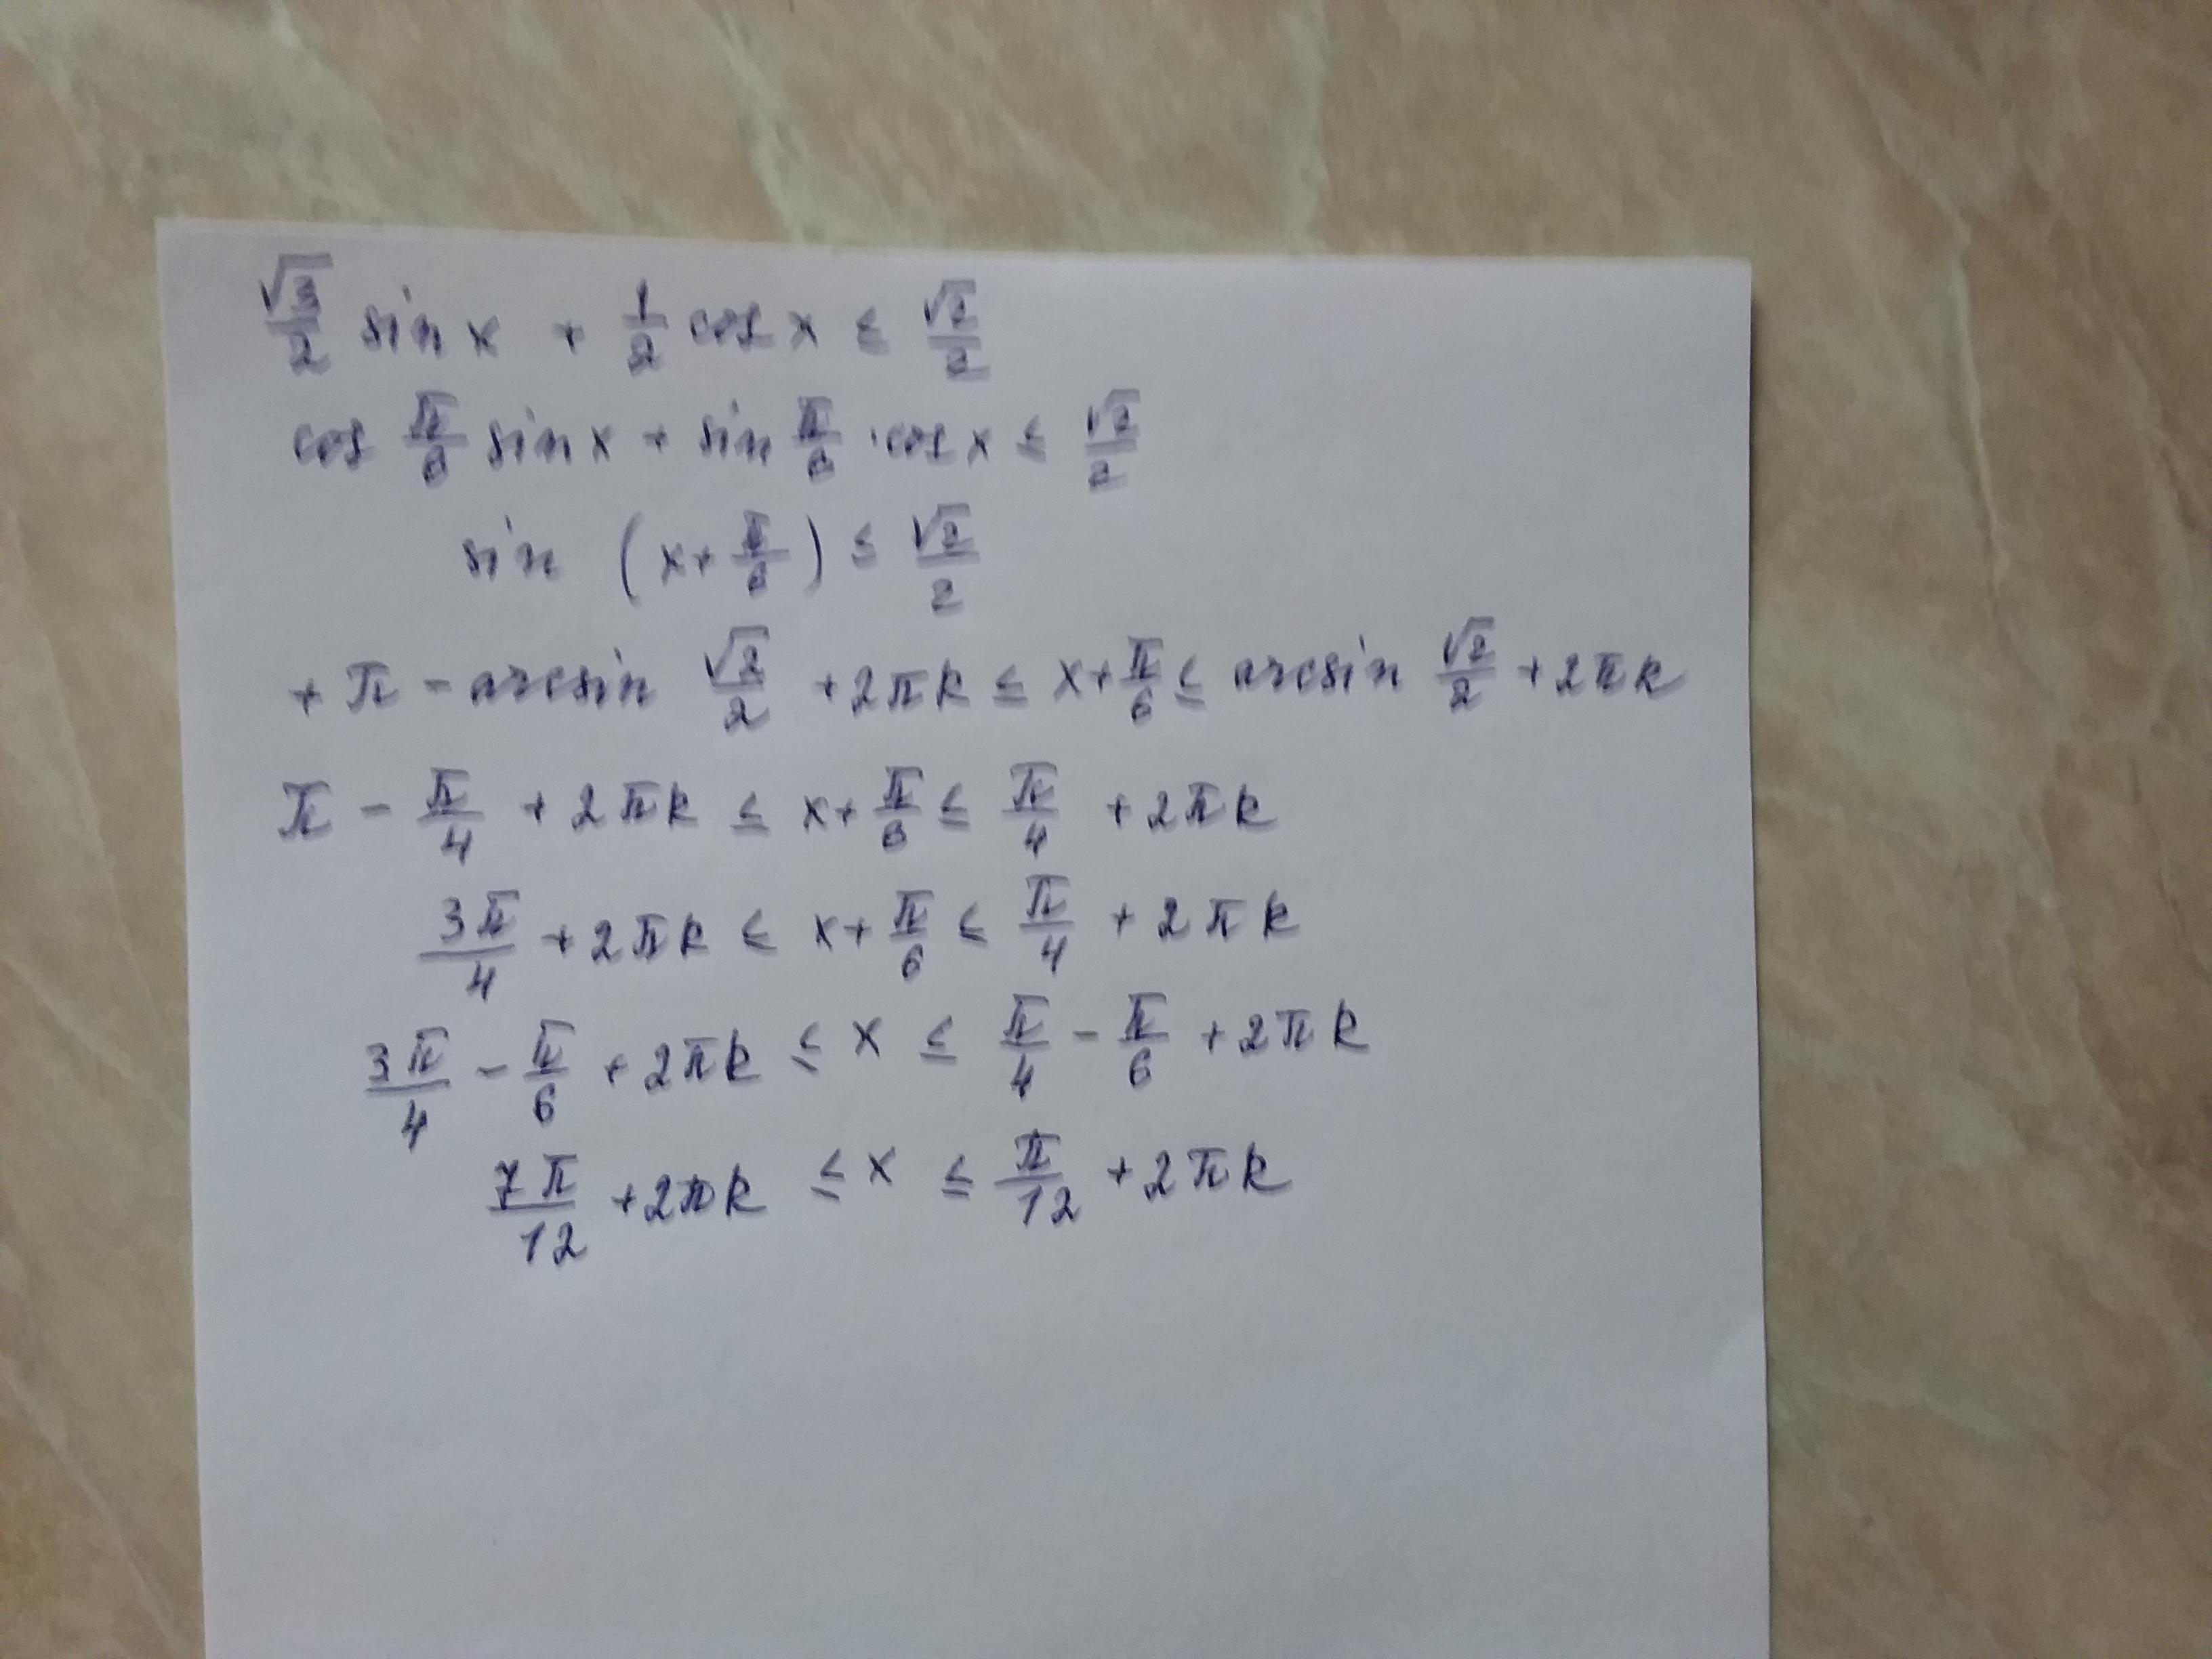 √3/2 sin x + 1/2 cos x ≤ √2/2
cos π/6 sin x + sin π/6 · cos x ≤ √2/2
sin (x + π/6) ≤ √2/2
+ π - arcsin √2/2 + 2πk ≤ x + π/6 ≤ arcsin √2/2 + 2πk
π - π/4 + 2πk ≤ x + π/6 ≤ π/4 + 2πk
3π/4 + 2πk ≤ x + π/6 ≤ π/4 + 2πk
3π/4 - π/6 + 2πk ≤ x ≤ π/4 - π/6 + 2πk
7π/12 + 2πk ≤ x ≤ π/12 + 2πk